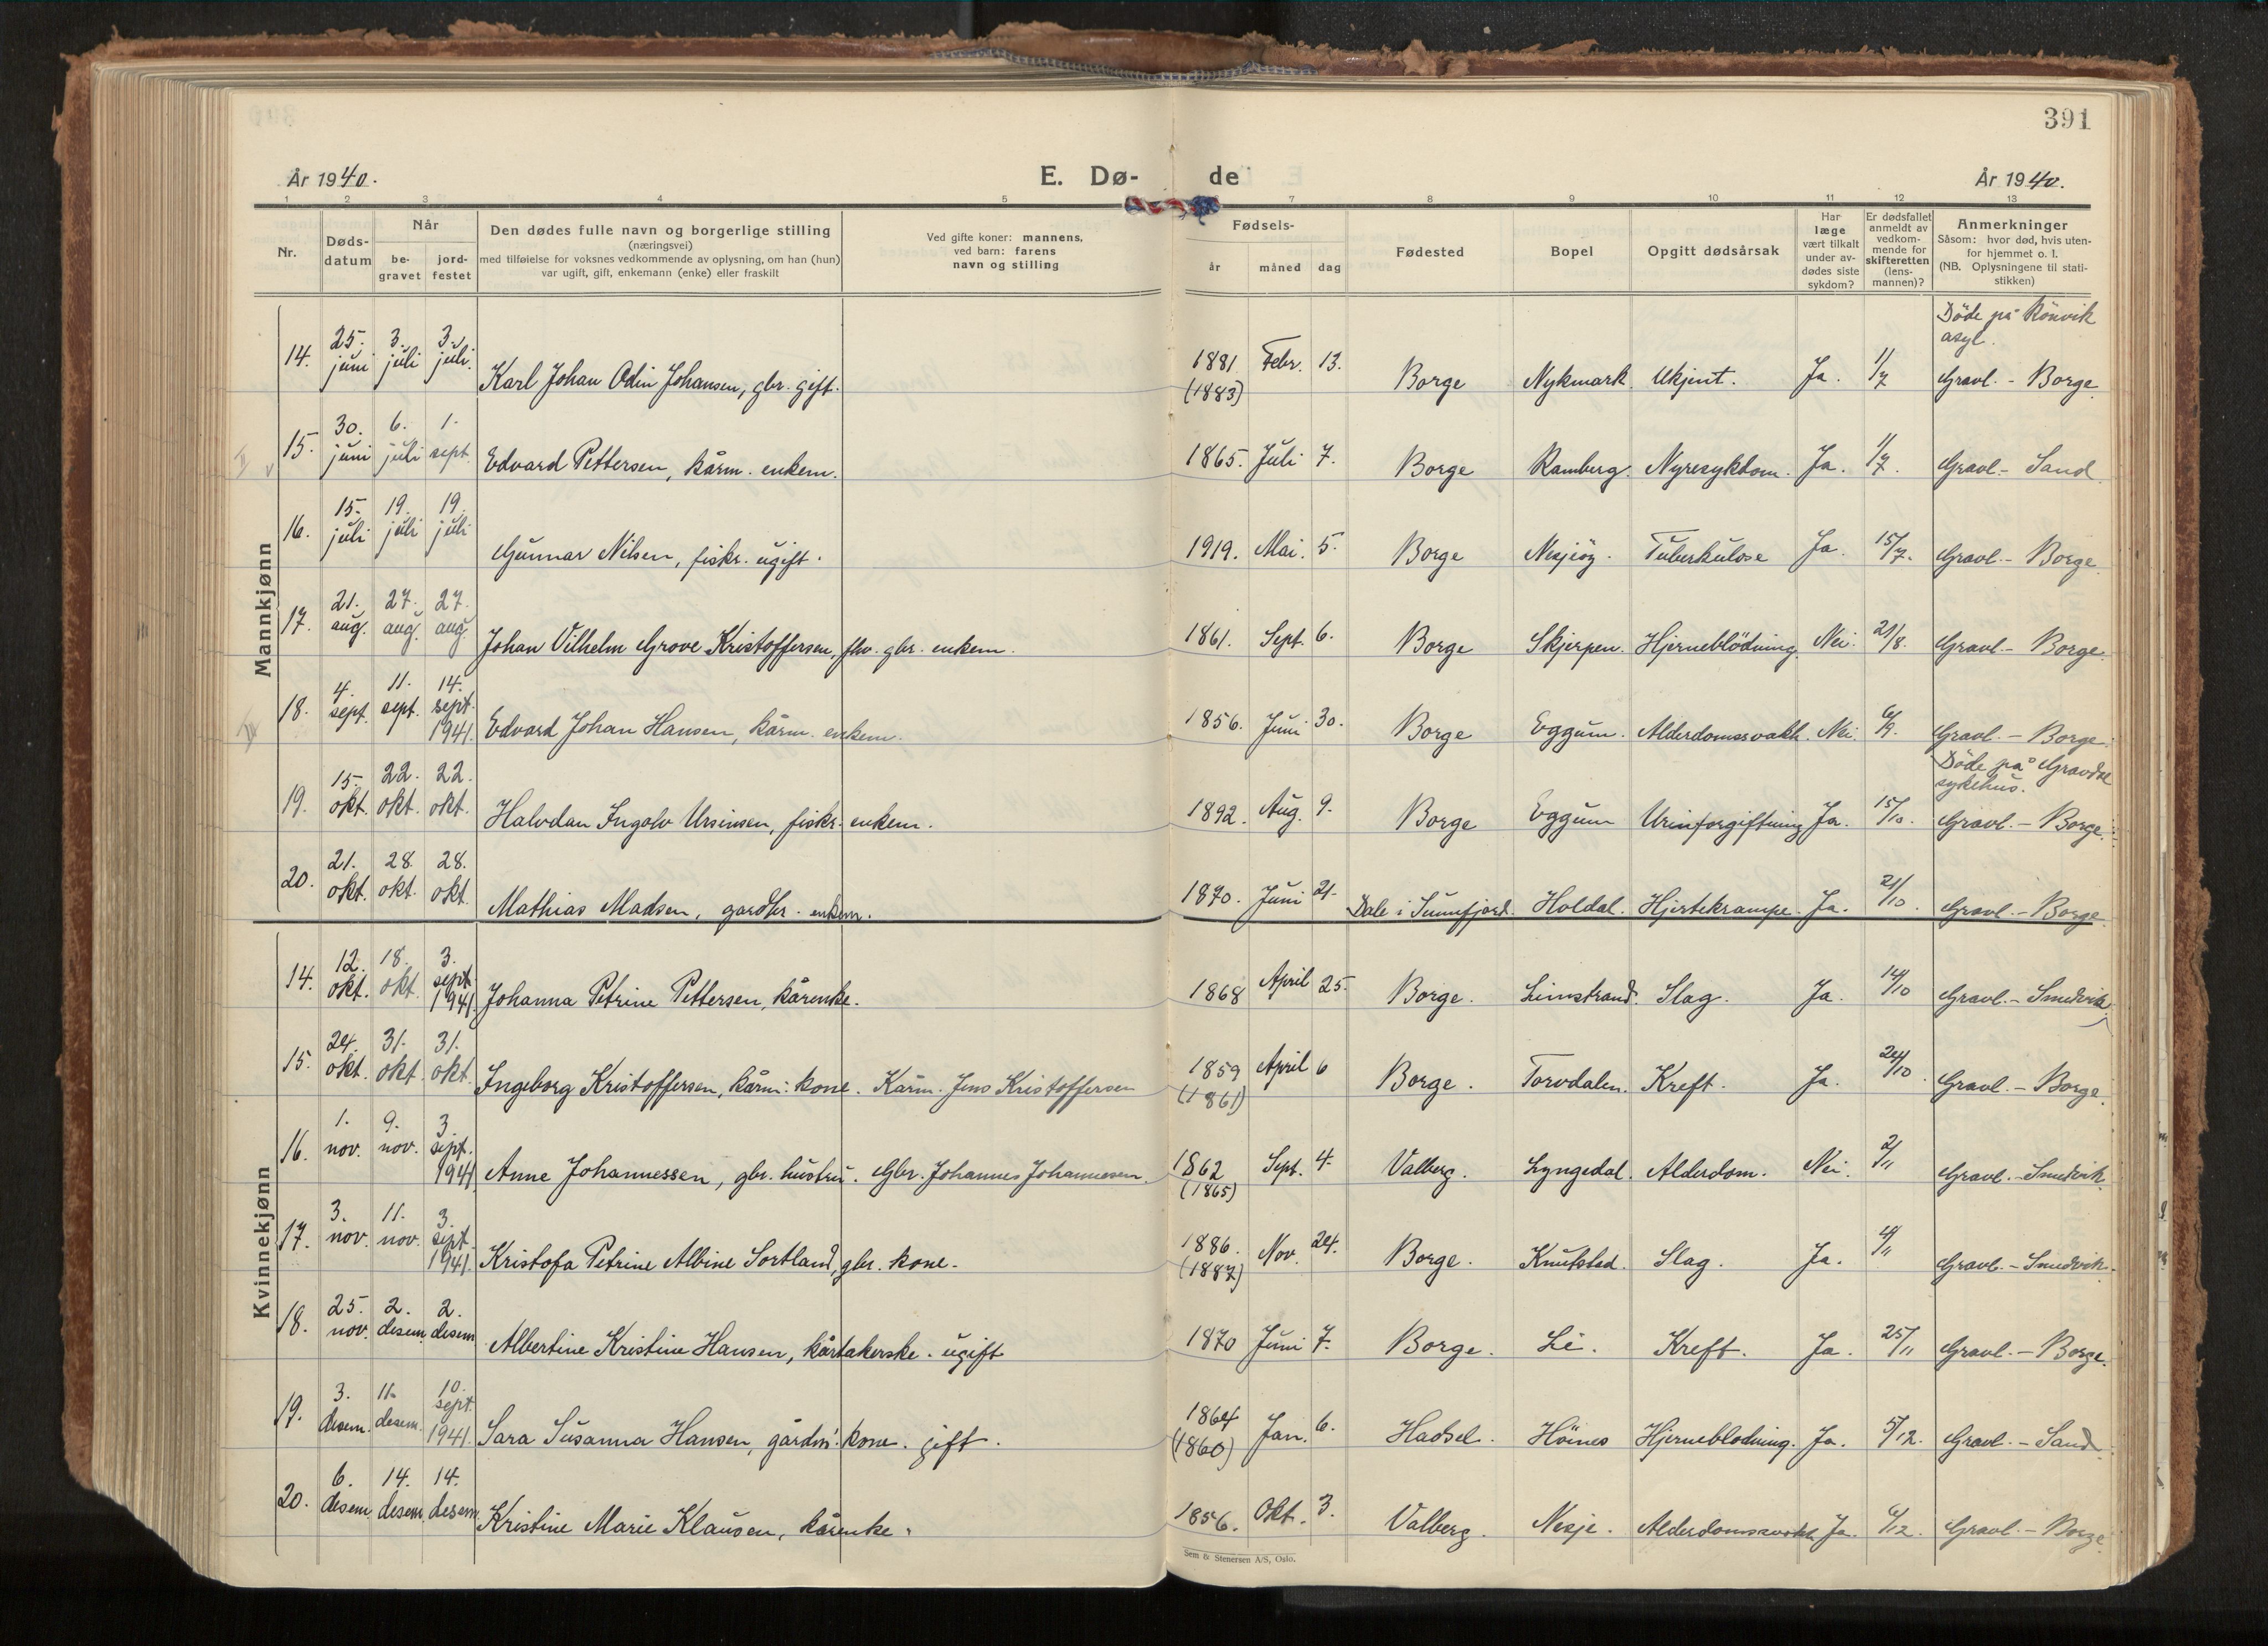 391
År 1940.
E. Dø-
de
År 1940.
1 2 3 4 5 7 8 9 10 11 12 13
Nr.
Døds-
datum
Når
be-
gravet
jord-
festet
Den dødes fulle navn og borgerlige stilling
(næringsvei)
med tilføielse for voksnes vedkommende av oplysning, om han (hun)
var ugift, gift, enkemann (enke) eller fraskilt
Ved gifte koner: mannens,
ved barn: farens
navn og stilling
Fødsels-
år måned dag
Fødested
Bopel
Opgitt dødsårsak
Har
læge
vært tilkalt
under av-
dødes siste
sykdom?
Er dødsfallet
anmeldt av
vedkom-
mende for
skifteretten
(lens-
mannen)?
Anmerkninger
Såsom: hvor død, hvis uten-
for hjemmet o. l.
(NB. Oplysningene til stati-
stikken)
Mannkjønn
Døde på Rønvik
asyl.
25. 3. 3.
14. juni juli juli. Karl Johan Odin Johansen, gbr. gift. 1881 Febr. 13. Borge Nykmark. Ukjent. Ja. 1/7 Gravl. - Borge
(1883)
30. 6. 1.
15. juni juli sept. Edvard Pettersen, kårm. enkem. 1865. Juli 7. Borge Ramberg. Nyresykdom. Ja. 1/7. Gravl. - Sand
15. 19. 19.
16. juli juli juli Gunnar Nilsen, fisker. ugift. 1919. Mai. 5. Borge Tuberkulose Ja. 15/7. Gravl. - Borge
21. 27. 27.
17. aug. aug. aug. Johan Vilhelm Grove Kristoffersen, fhv. gbr. enkem. 1861. Sept. 6. Borge Skjerpen. Hjerneblödning. Nei. 21/8. Gravl. - Borge.
4. 11. 14.
18. sept. sept. sept.
1941. Edvard Johan Hansen, kårm. enkem. 1856. Juni 30. Borge Eggum. Alderdomssvakh. Nei. 6/9. Gravl. - Borge.
Döde på Gravdal
sykehus.
15. 22. 22.
19. okt. okt. okt. Halvdan Ingolv Ursinsen, fisker. enkem. 1892. Aug. 9. Borge Eggum Urinforgiftning Ja. 15/10. Gravl. - Borge.
21. 28. 28.
20. okt. okt. okt. Mathias Madsen, gardbr. enkem. 1870. Juni 21. Dale i Sunnfjord. Holdal. Hjertekrampe. Ja. 21/10. Gravl. - Borge
Kvinnekjønn
12. 18. 3.
14. okt. okt. sept.
1941. Johanna Petrine Pettersen, kårenke. 1868 April 25. Borge. Limstrand. Slag. Ja. 14/10 Gravl. - Smedvik
24. 31. 31.
15. okt. okt. okt. Ingeborg Kristoffersen, kårm. kone. Kårm. Jens Kristoffersen 1859 April 6 Borge. Torvdalen. Kreft. Ja. 24/10. Gravl. - Borge.
(1861)
1. 9. 3.
16. nov. nov. sept.
1941 Anne Johannessen, gbr. hustru. Gbr. Johannes Johannesen. 1862 Sept. 4. Valberg. Lyngedal. Alderdom. Nei. 2/11 Gravl. - Smedvik.
(1865)
3. 11. 3.
17. nov. nov. sept.
1941. Kristofa Petrine Albine Sortland, gbr. kone. 1886. Nov. 24. Borge. Knutstad. Slag. Ja. 4/11 Gravl. - Smedvik.
(1887)
25. 2. 2.
18. nov. desem. desem. Albertine Kristine Hansen, kårtakerske. ugift 1870 Juni 7. Borge. Lè. Kreft. Ja. 25/11 Gravl. - Borge.
3. 11. 10.
19. desem. desem. sept.
1941. Sara Susanna Hansen, gårdm. kone. gift. 1864 Jan. 6. Hadsel. Höines Hjerneblodning. Ja. 5/12. Gravl. - Sand
(1860)
6. 14. 14.
20. desem. desem. desem. Kristine Marie Klausen, kårenke. 1856. Okt. 3. Valberg. Nesje. Alderdomssvakh. Ja. 6/12. Gravl. - Borge
Sem & Stenersen A/S, Oslo.